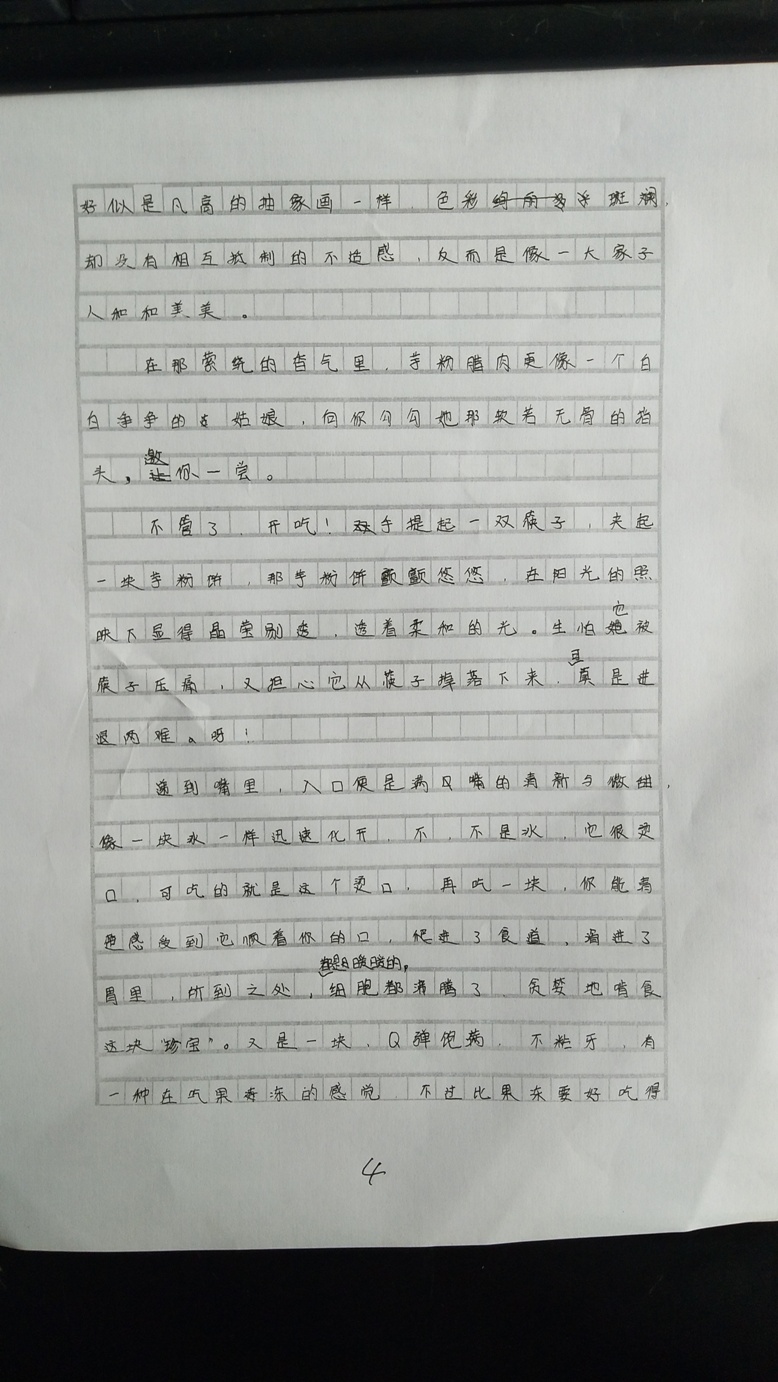 好似是凡高的抽象画一样，色彩斑斓，
却没有相互抵制的不适感，反而是像一大家子
人和和美美。
在那萦绕的香气里，芋粉腊肉更像一个白
白争争的姑娘，向你勾勾她那软若无骨的指
头，邀你一尝。
不管了，开吃！手提起一双筷子，夹起
一块芋粉饼，那芋粉饼颤颤悠悠，在阳光的照
映下显得晶莹剔透，透着柔和的光。生怕它被
筷子压痛，又担心它从筷子掉落下来，真是进
退两难。呀！
递到嘴里，入口便是满口嘴的清新与微甜，
像一块冰一样迅速化开，不，不是冰，它很烫
口，可吃的就是这个烫口，再吃一块，你能清
楚感受到它顺着你的口，爬进了食道，滑进了
胃里，所到之处，都是暖暖的，细胞都沸腾了，贪婪地啃食
这块“珍宝”。又是一块，Q弹饱满，不粘牙，有
一种在吃果冻的感觉，不过比果冻要好吃得
4